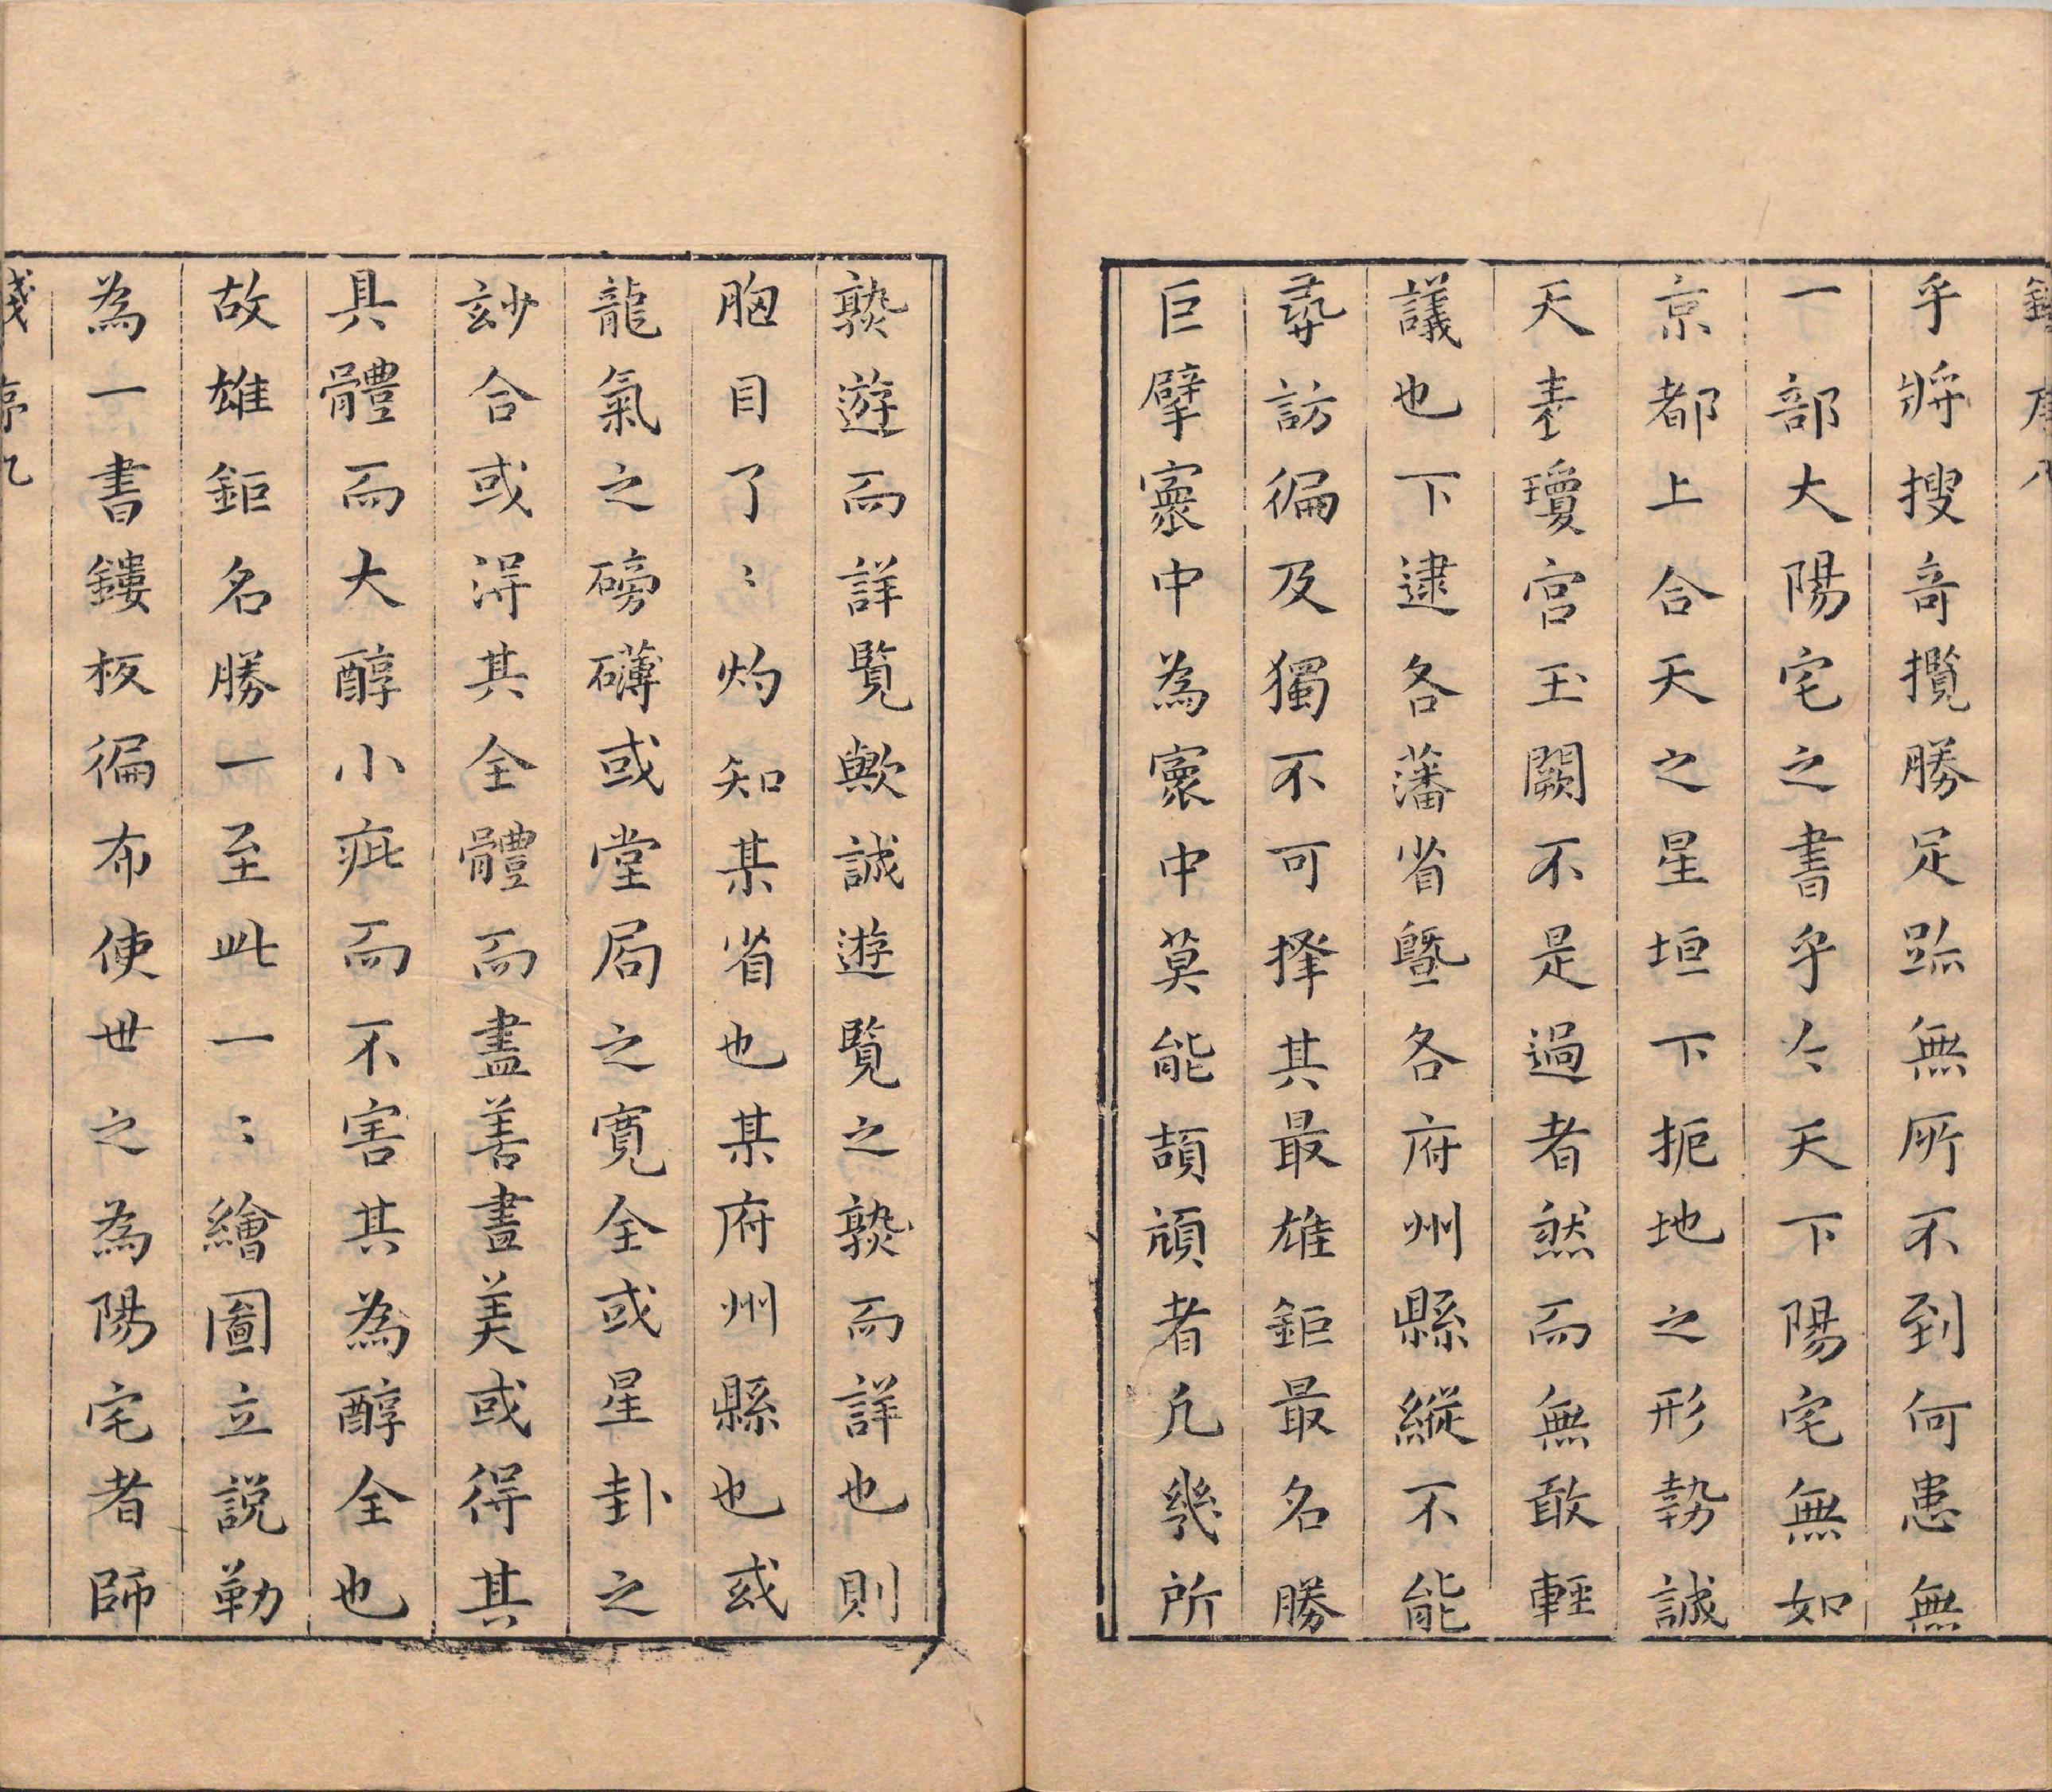 乎將搜奇攬勝足跡無所不到何患無
一部大陽宅之書乎今天下陽宅無如
京都上合天之星垣下扼地之形勢誠
天表瓊宮玉闕不是過者然而無敢輕
議也下逮各藩省曁各府州縣縱不能
尋訪徧及獨不可擇其最雄鉅最名勝
巨擘寰中為寰中莫能頡頏者凡幾所
熟遊而詳覽歟誠遊覽之熟而詳也則
胸目了〻灼知某省也某府州縣也或
龍氣之磅礴或堂局之寬全或星卦之
玅合或淂其全體而盡善盡美或得其
具體而大醇小疵而不害其為醇全也
故雄鉅名勝一至此一〻繪圖立說勒
為一書鏤板徧布使世之為陽宅者師